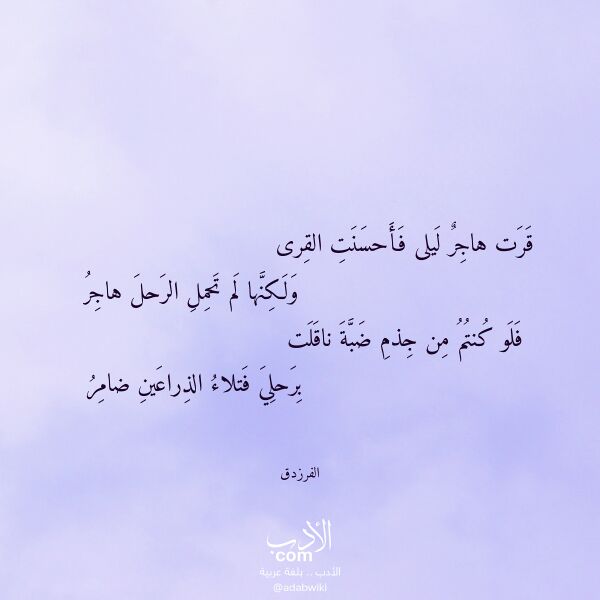 قَرَت هاجِرٌ لَيلى فَأَحسَنَتِ القِرى
وَلَكِنَّها لَم تَحمِلِ الرَحلَ هاجِرُ
فَلَو كُنتُمُ مِن جِذمِ ضَبَّةَ ناقَلَت
بِرَحلِيَ فَتلاءُ الذِراعَينِ ضامِرُ
الفرزدق
الأدب
com
الأدب .. بلغة عربية
@adabwiki